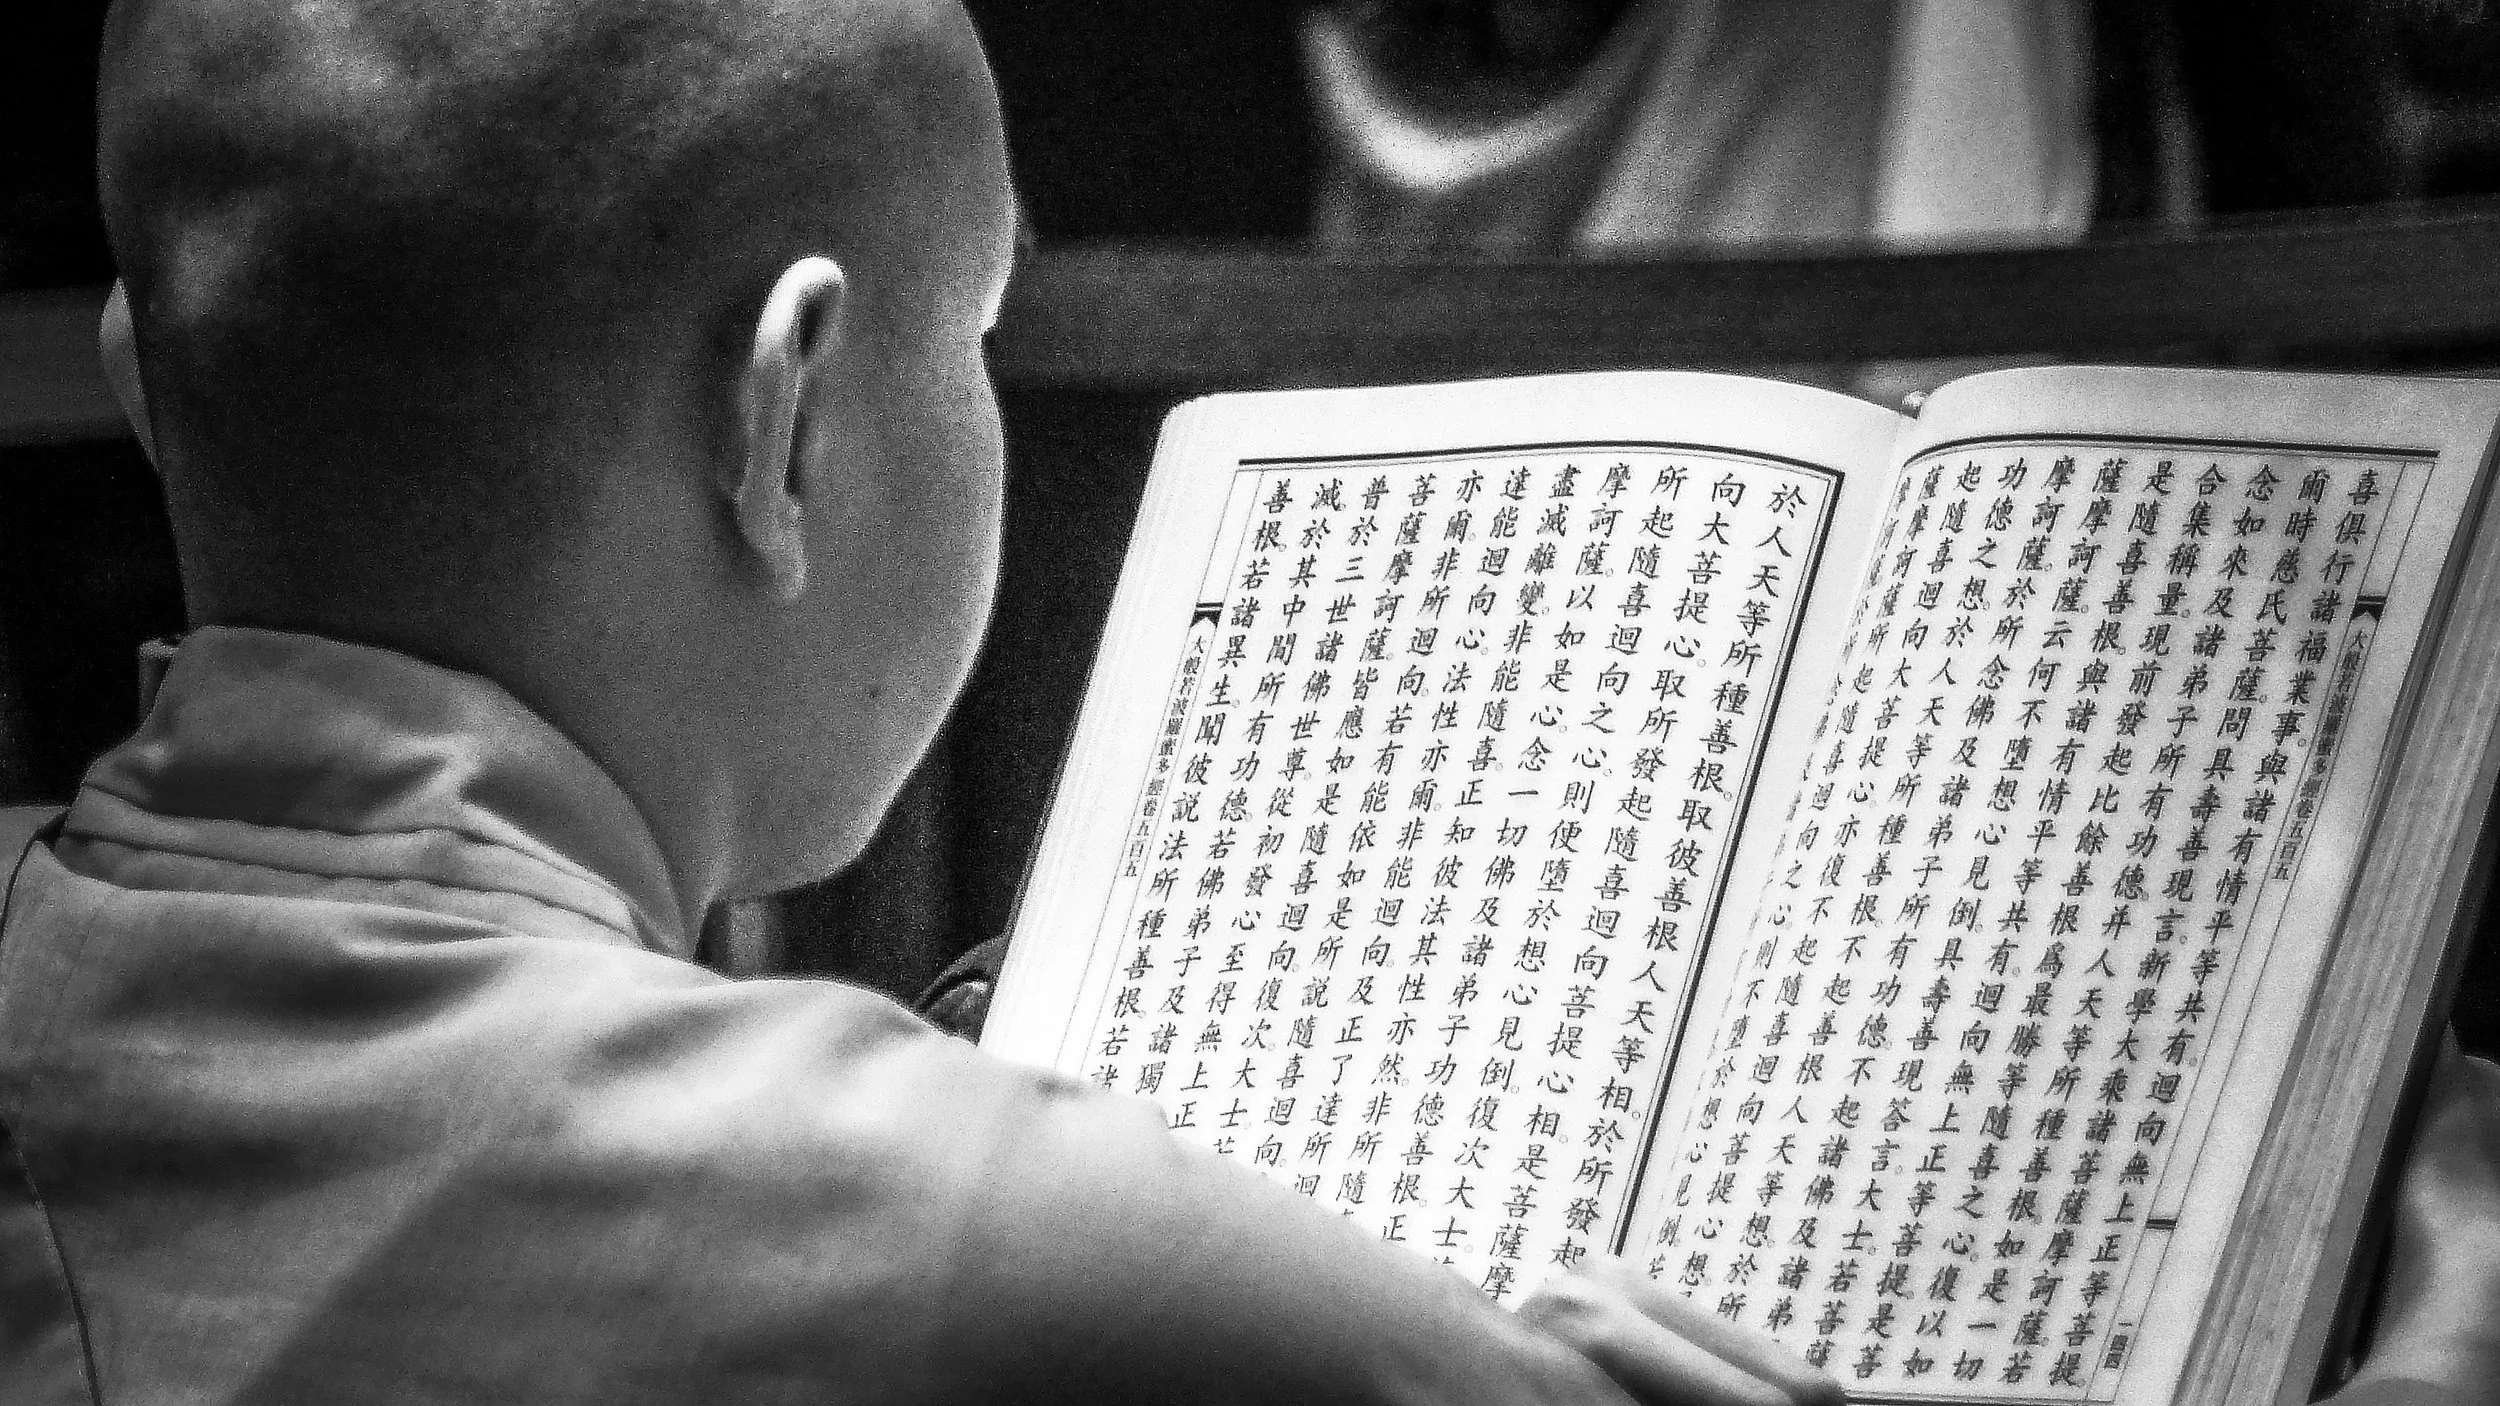 喜俱行諸福業事。與諸有情平等共有。迴向無上正等菩提
爾時慈氏菩薩。問具壽善現言。新學大乘諸菩薩摩訶薩。若
念如來及諸弟子所有功德。并人天等所種善根。如是一切
合集稱量。現前發起比餘善根為最勝等隨喜之心。復以如
是隨喜善根。與諸有情平等共有。迴向無上正等菩提。是菩
薩摩訶薩。云何不墮想心見倒。具壽善現答言。大士。若菩薩
摩訶薩。於所念佛及諸弟子所有功德。不起諸佛及諸弟
功德之想。於人天等所種善根。不起善根人天等想。於所
起隨喜迴向大菩提心亦復不起隨喜迴向菩提心想
薩摩訶薩所起隨喜迴向之心。則不墮於想心見倒。
大般若波羅蜜多經卷五百五
一四四
於人天等所種善根。取彼善根人天等相。於所發起
向大菩提心。取所發起隨喜迴向菩提心相。是菩薩摩
所起隨喜迴向之心。則便墮於想心見倒。復次大士。
摩訶薩。以如是心。念一切佛及諸弟子功德善根。正
盡滅離變。非能隨喜。正知彼法其性亦然。非所隨
達能迴向心。法性亦爾。非能迴向。及正了達所迴
亦爾。非所迴向。若有能依如是所說隨喜迴向
菩薩摩訶薩。皆應如是隨喜迴向。復次大士。
普於三世諸佛世尊。從初發心至得無上正
滅。於其中間所有功德。若佛弟子及諸獨
善根。若諸異生。聞彼說法所種善根。若
大般若波羅蜜多經卷五百五